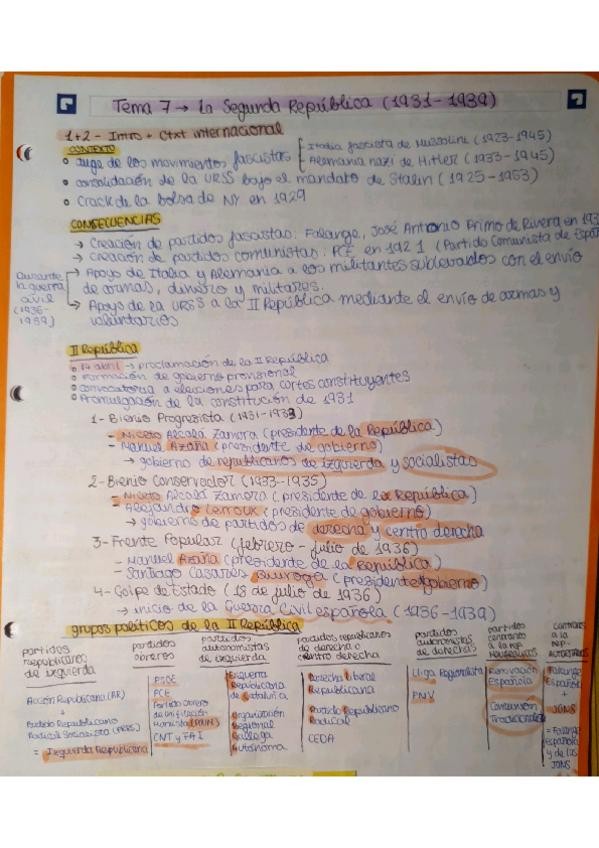 Tema 7 → La Segunda República (1931-1939)
1+2 - Intro + Ctxt internacional
CONTEXTO
auge de los movimientos fascistas
Italia fascista de Mussolini (1923-1945)
Alemania nazi de Hitler (1933-1945)
consolidación de la URSS bajo el mandato de Stalin (1925-1953)
Crack de la bolsa de NY en 1929
CONSECUENCIAS
→ Creación de partidos fascistas: Falange, José Antonio Primo de Rivera en 193
→ creación de partidos comunistas: PCE en 1921 (Partido Comunista de Españ
Durante la guerra civil (1936-1939)
→ Apoyo de Italia y Alemania a los militantes sublevados con el envío
de armas, dinero y militares.
→ Apoyo de la URSS a la II República mediante el envío de armas y
voluntarios
II República
14 abril → proclamación de la II República
Formación de gobierno provisional
Convocatoria a elecciones para cortes constituyentes
Promulgación de la constitución de 1931
1- Bienio Progresista (1931-1933)
- Niceto Alcalá Zamora (presidente de la República)
- Manuel Azaña (presidente de gobierno)
→ gobierno de republicanos de izquierda y socialistas
2- Bienio Conservador (1933-1935)
- Niceto Alcalá Zamora (presidente de la República)
- Alejandro Lerroux (presidente de gobierno)
→ gobierno de partidos de derecha y centro derecha
3- Frente Popular (febrero - julio de 1936)
- Manuel Azaña (presidente de la República)
- Santiago Casares Quiroga (presidente gobierno)
4- Golpe de Estado (18 de julio de 1936)
→ inicio de la Guerra Civil española (1936-1939)
grupos políticos de la II República
partidos
republicanos
de izquierda
Acción Republicana (AR)
Partido Republicano
Radical Socialista
= Izquierda Republicana
partidos
obreros
PSOE
PCE
Partido obrero
de Unificación
Marxista (POUM)
CNT y FAI
partidos
autonomistas
de izquierda
Esquerra
Republicana
de Cataluña
Organización
Regional
Gallega
Autónoma
partidos republicanos
de derecha o
centro derecha
Derecha Liberal
Republicana
Partido Republicano
Radical
CEDA
partidos
autonomistas
de derechas
Lliga Regionalista
PNV
partidos
contrarios
a la rep.
Renovación
Española
Comunión
Tradicionalista
contrarios
a la
rep.
Falange
Española
+
JONS
= Falange
Española
y de las
JONS